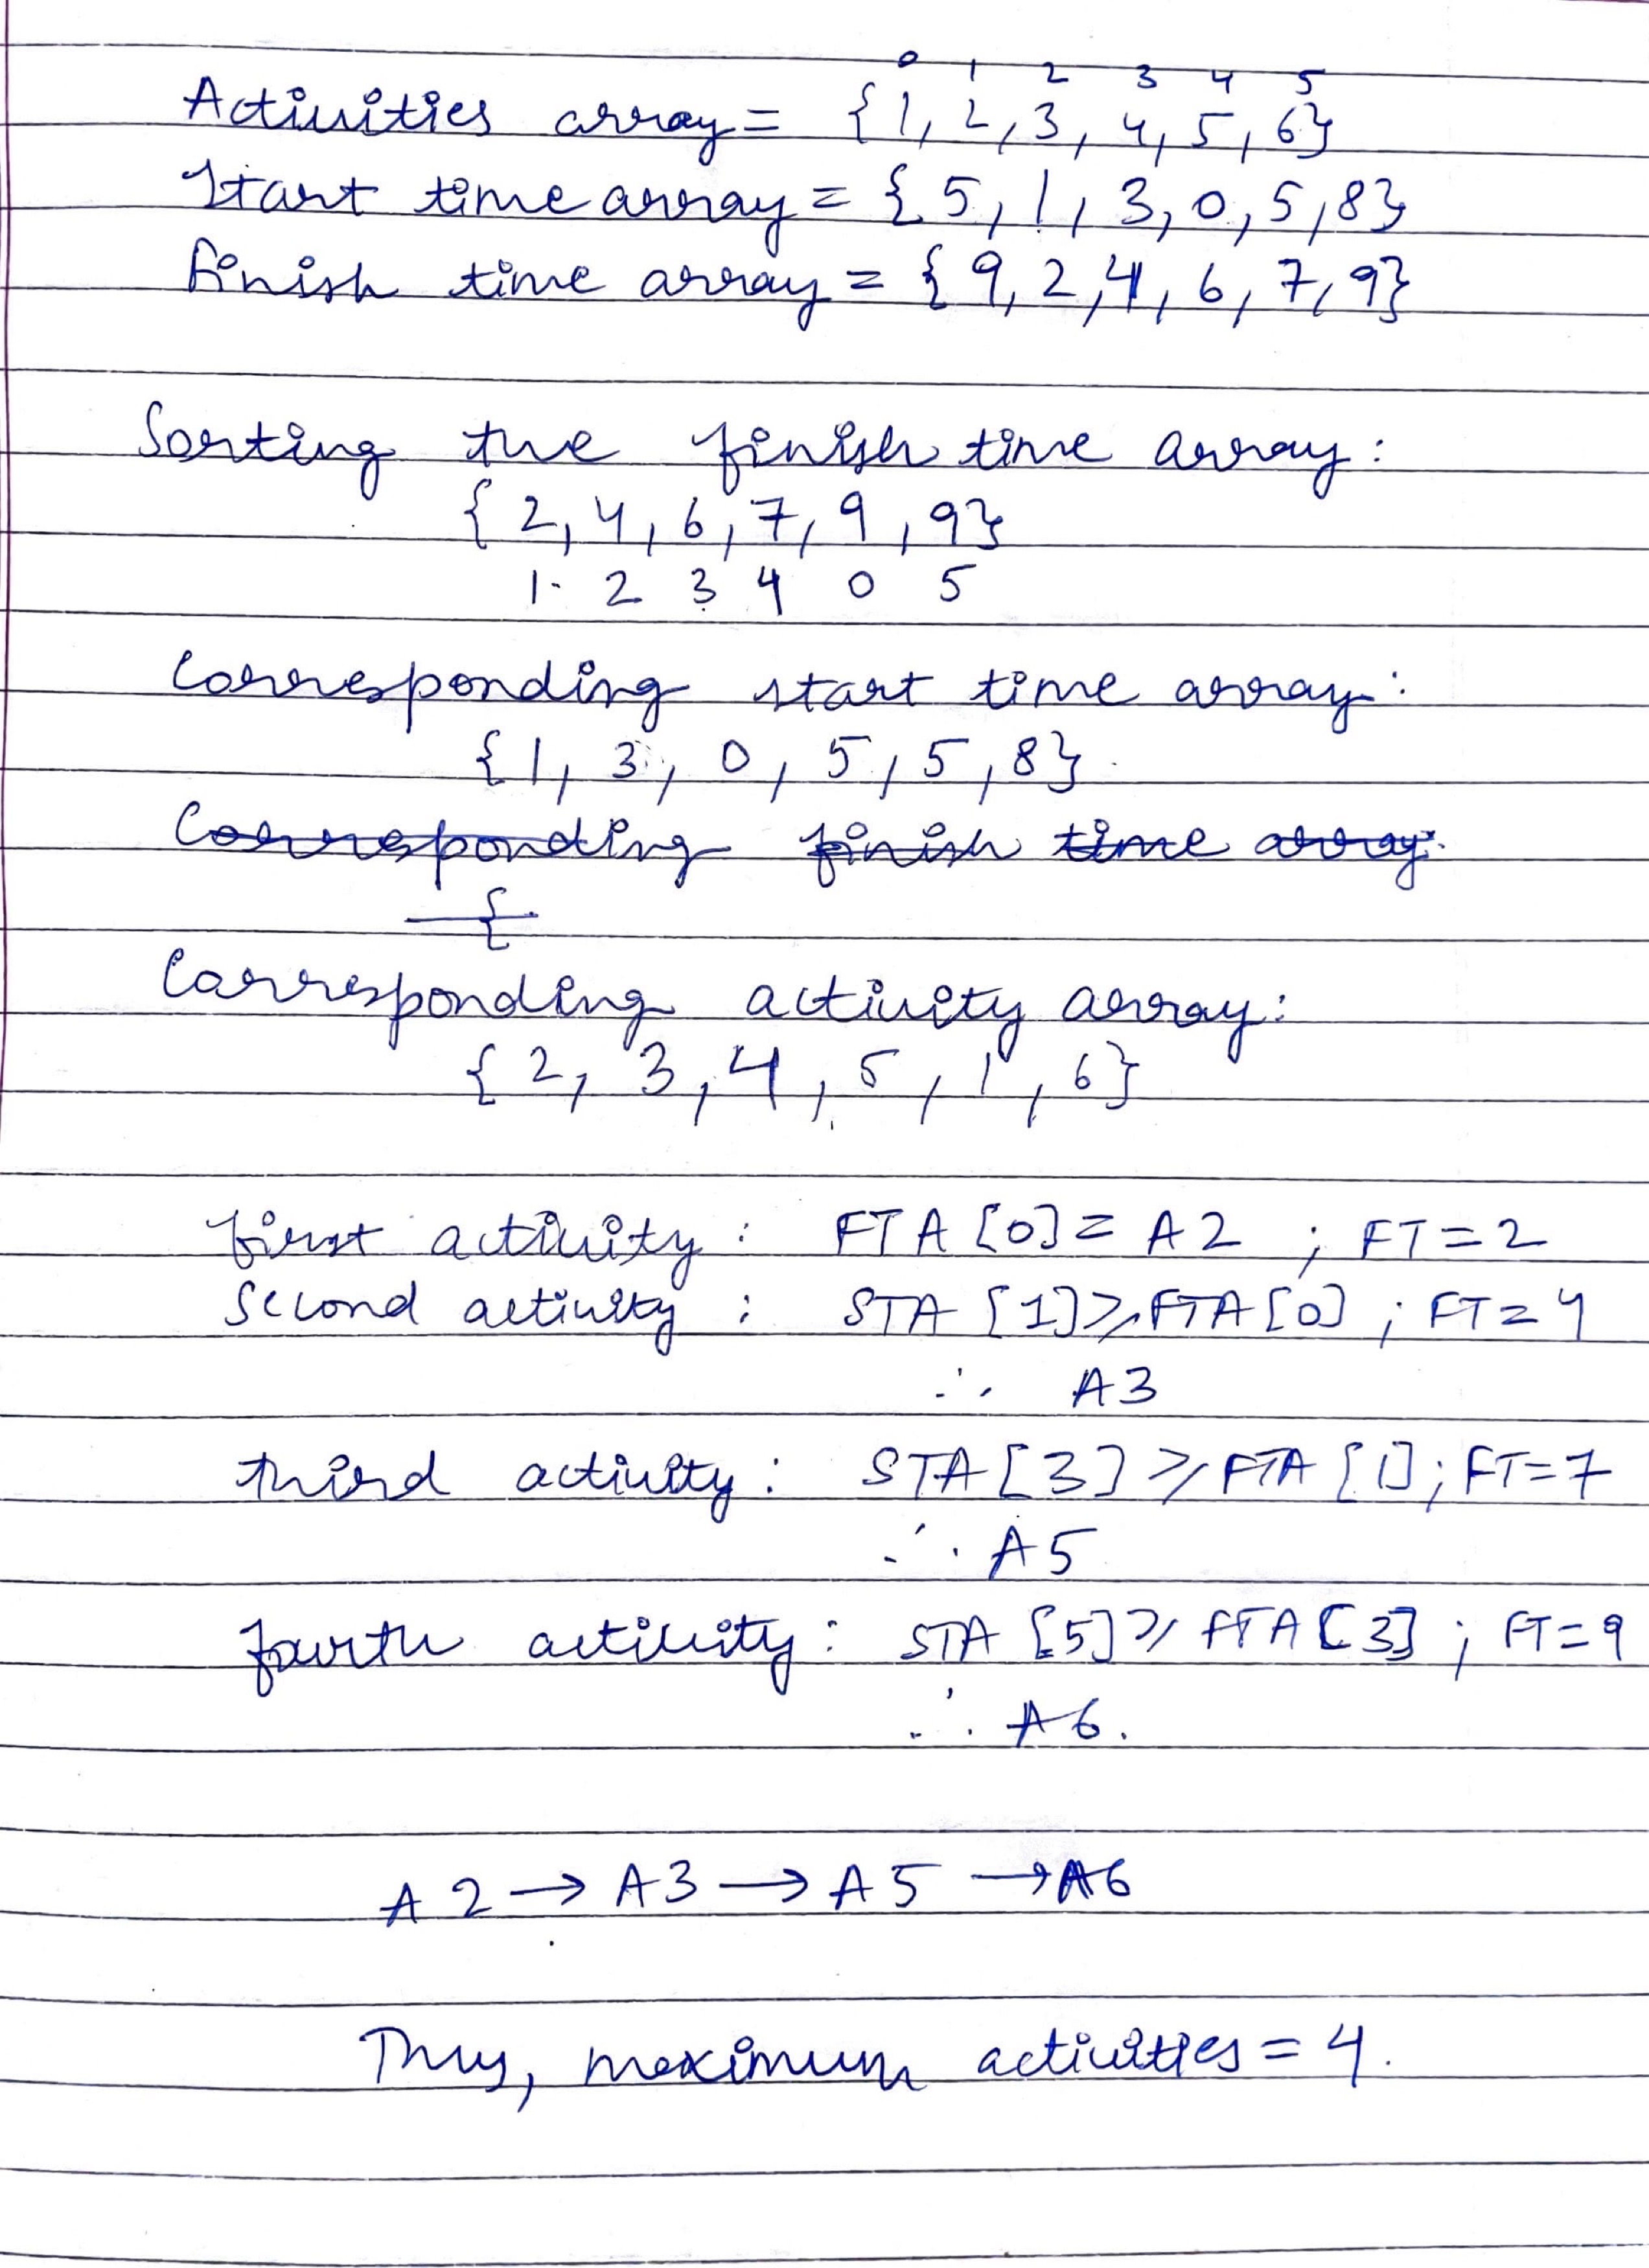 0 1 2 3 4 5
Activities array = {1, 2, 3, 4, 5, 6}
Start time array = {5, 1, 3, 0, 5, 8}
Finish time array = {9, 2, 4, 6, 7, 9}
Sorting the finish time array :
{2, 4, 6, 7, 9, 9}
1 2 3 4 0 5
Corresponding start time array :
{1, 3, 0, 5, 5, 8}
Corresponding finish time array
{
Corresponding activity array :
{2, 3, 4, 5, 1, 6}
first activity : FTA [0] = A2 ; FT = 2
Second activity : STA [1] ≥ FTA [0] ; FT = 4
∴ A3
third activity : STA [3] ≥ FTA [1] ; FT = 7
∴ A5
fourth activity : STA [5] ≥ FTA [3] ; FT = 9
∴ A6.
A2 → A3 → A5 → A6
Thus, maximum activities = 4.